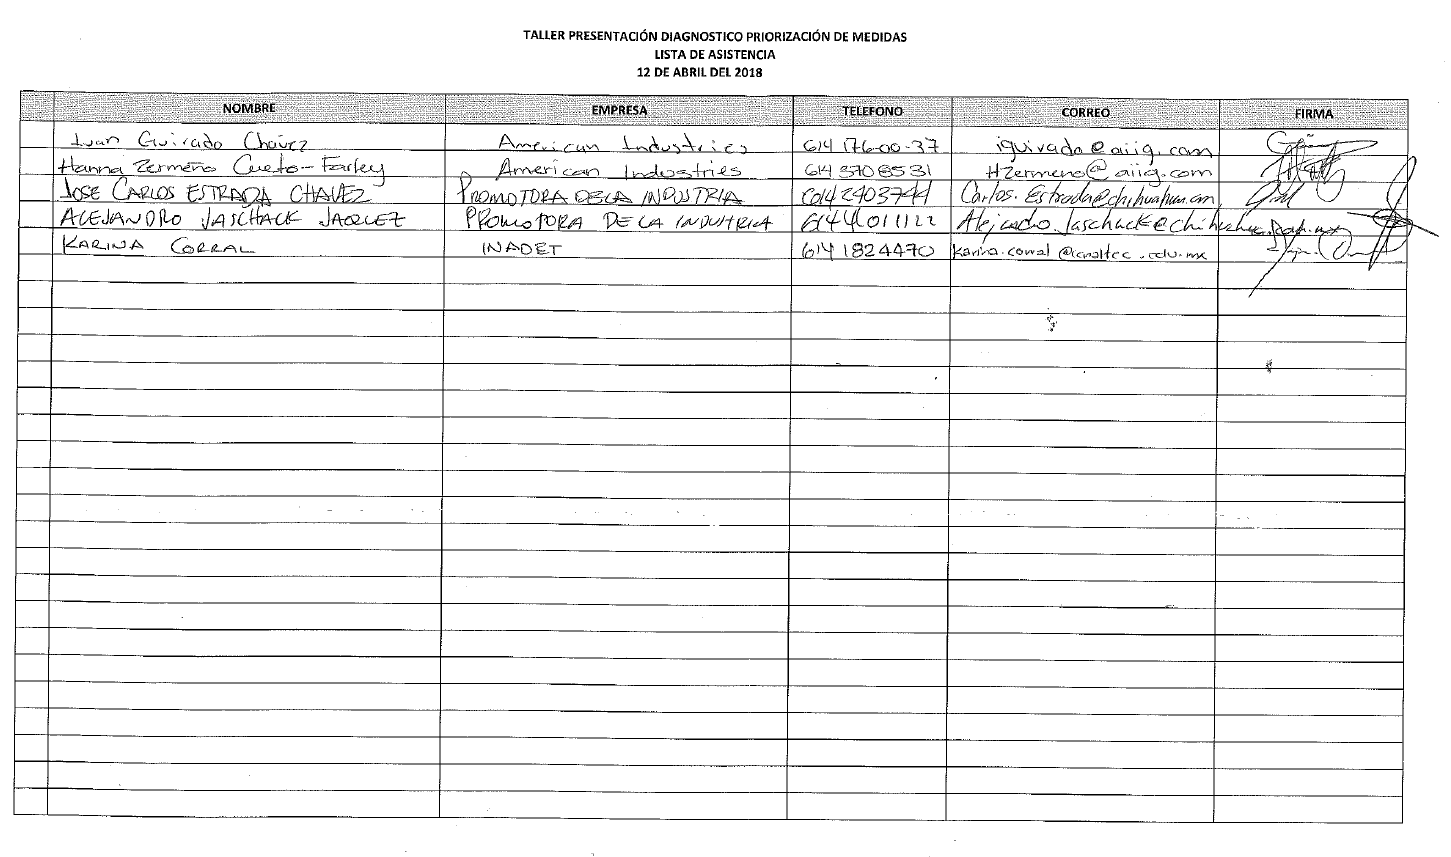 TALLER PRESENTACIÓN DIAGNOSTICO PRIORIZACIÓN DE MEDIDAS
LISTA DE ASISTENCIA
12 DE ABRIL DEL 2018
NOMBRE EMPRESA TELEFONO CORREO FIRMA
Guirado Chávez American Industries 614 176-00-37 iguirado@aiig.com
Hanna Zermeño Cueto-Farley American Industries 614 370 8531 HZermeno@aiig.com
JOSE CARLOS ESTRADA CHAVEZ PROMOTORA DE LA INDUSTRIA Carlos.Estrada@chihuahua.com
ALEJANDRO JASCHACK JAQUEZ PROMOTORA DE LA INDUSTRIA 6144011122
KARINA CORRAL INADET 614 1824470